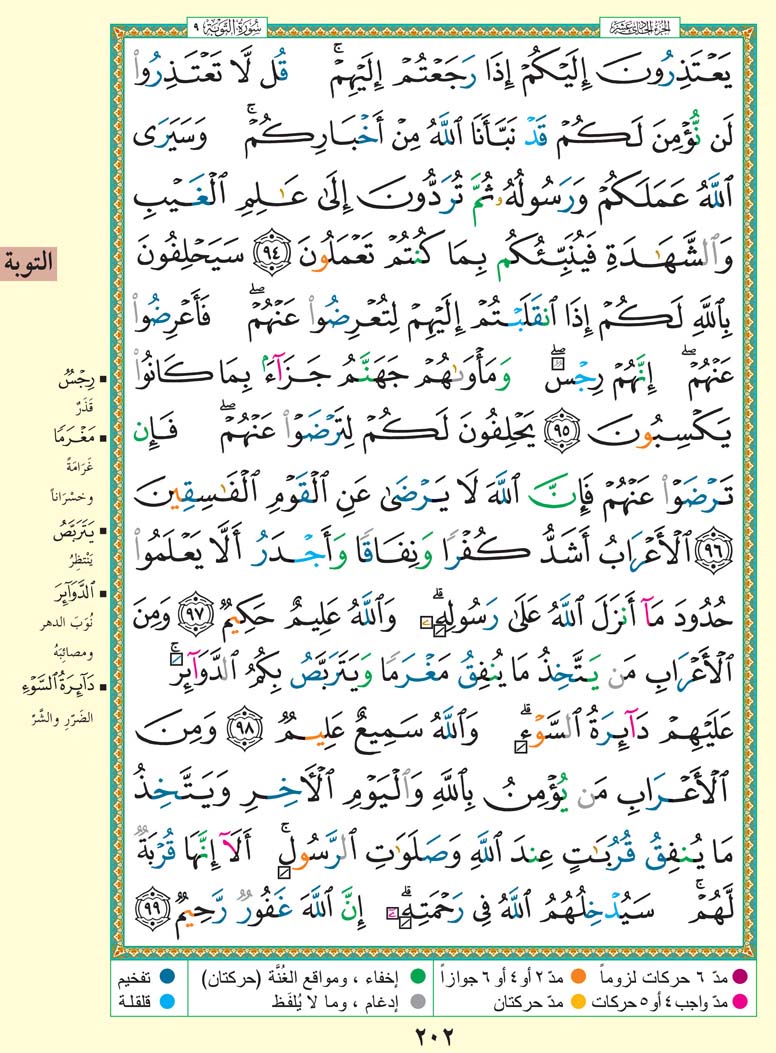 الجزء الحادي عشر
سورة التوبة ٩
يَعْتَذِرُونَ إِلَيْكُمْ إِذَا رَجَعْتُمْ إِلَيْهِمْ ۚ قُل لَّا تَعْتَذِرُوا۟
لَن نُّؤْمِنَ لَكُمْ قَدْ نَبَّأَنَا ٱللَّهُ مِنْ أَخْبَارِكُمْ ۚ وَسَيَرَى
ٱللَّهُ عَمَلَكُمْ وَرَسُولُهُۥ ثُمَّ تُرَدُّونَ إِلَىٰ عَٰلِمِ ٱلْغَيْبِ
وَٱلشَّهَٰدَةِ فَيُنَبِّئُكُم بِمَا كُنتُمْ تَعْمَلُونَ ٩٤ سَيَحْلِفُونَ
بِٱللَّهِ لَكُمْ إِذَا ٱنقَلَبْتُمْ إِلَيْهِمْ لِتُعْرِضُوا۟ عَنْهُمْ ۖ فَأَعْرِضُوا۟
عَنْهُمْ ۖ إِنَّهُمْ رِجْسٌ ۖ وَمَأْوَىٰهُمْ جَهَنَّمُ جَزَآءًۢ بِمَا كَانُوا۟
يَكْسِبُونَ ٩٥ يَحْلِفُونَ لَكُمْ لِتَرْضَوْا۟ عَنْهُمْ ۖ فَإِن
تَرْضَوْا۟ عَنْهُمْ فَإِنَّ ٱللَّهَ لَا يَرْضَىٰ عَنِ ٱلْقَوْمِ ٱلْفَٰسِقِينَ
٩٦ ٱلْأَعْرَابُ أَشَدُّ كُفْرًا وَنِفَاقًا وَأَجْدَرُ أَلَّا يَعْلَمُوا۟
حُدُودَ مَآ أَنزَلَ ٱللَّهُ عَلَىٰ رَسُولِهِۦ ۗ وَٱللَّهُ عَلِيمٌ حَكِيمٌ ٩٧ وَمِنَ
ٱلْأَعْرَابِ مَن يَتَّخِذُ مَا يُنفِقُ مَغْرَمًا وَيَتَرَبَّصُ بِكُمُ ٱلدَّوَآئِرَ ۚ
عَلَيْهِمْ دَآئِرَةُ ٱلسَّوْءِ ۗ وَٱللَّهُ سَمِيعٌ عَلِيمٌ ٩٨ وَمِنَ
ٱلْأَعْرَابِ مَن يُؤْمِنُ بِٱللَّهِ وَٱلْيَوْمِ ٱلْءَاخِرِ وَيَتَّخِذُ
مَا يُنفِقُ قُرُبَٰتٍ عِندَ ٱللَّهِ وَصَلَوَٰتِ ٱلرَّسُولِ ۚ أَلَآ إِنَّهَا قُرْبَةٌ
لَّهُمْ ۚ سَيُدْخِلُهُمُ ٱللَّهُ فِى رَحْمَتِهِۦٓ ۗ إِنَّ ٱللَّهَ غَفُورٌ رَّحِيمٌ ٩٩
التوبة
رِجْسٌ
قَذَرٌ
مَغْرَمًا
غَرَامَةً
وخسْرَاناً
يَتَرَبَّصُ
يَنْتَظِرُ
ٱلدَّوَآئِرَ
نُوَبَ الدهر
ومصائِبَهُ
دَآئِرَةُ ٱلسَّوْءِ
الضَرَرِ والشَّرّ
مدّ ٦ حركات لزوماً
مدّ ٢ أو ٤ أو ٦ جوازاً
إخفاء ، ومواقع الغُنَّة (حركتان)
تفخيم
مدّ واجب ٤ أو ٥ حركات
مدّ حركتان
إدغام ، وما لا يُلفَظ
قلقلة
٢٠٢